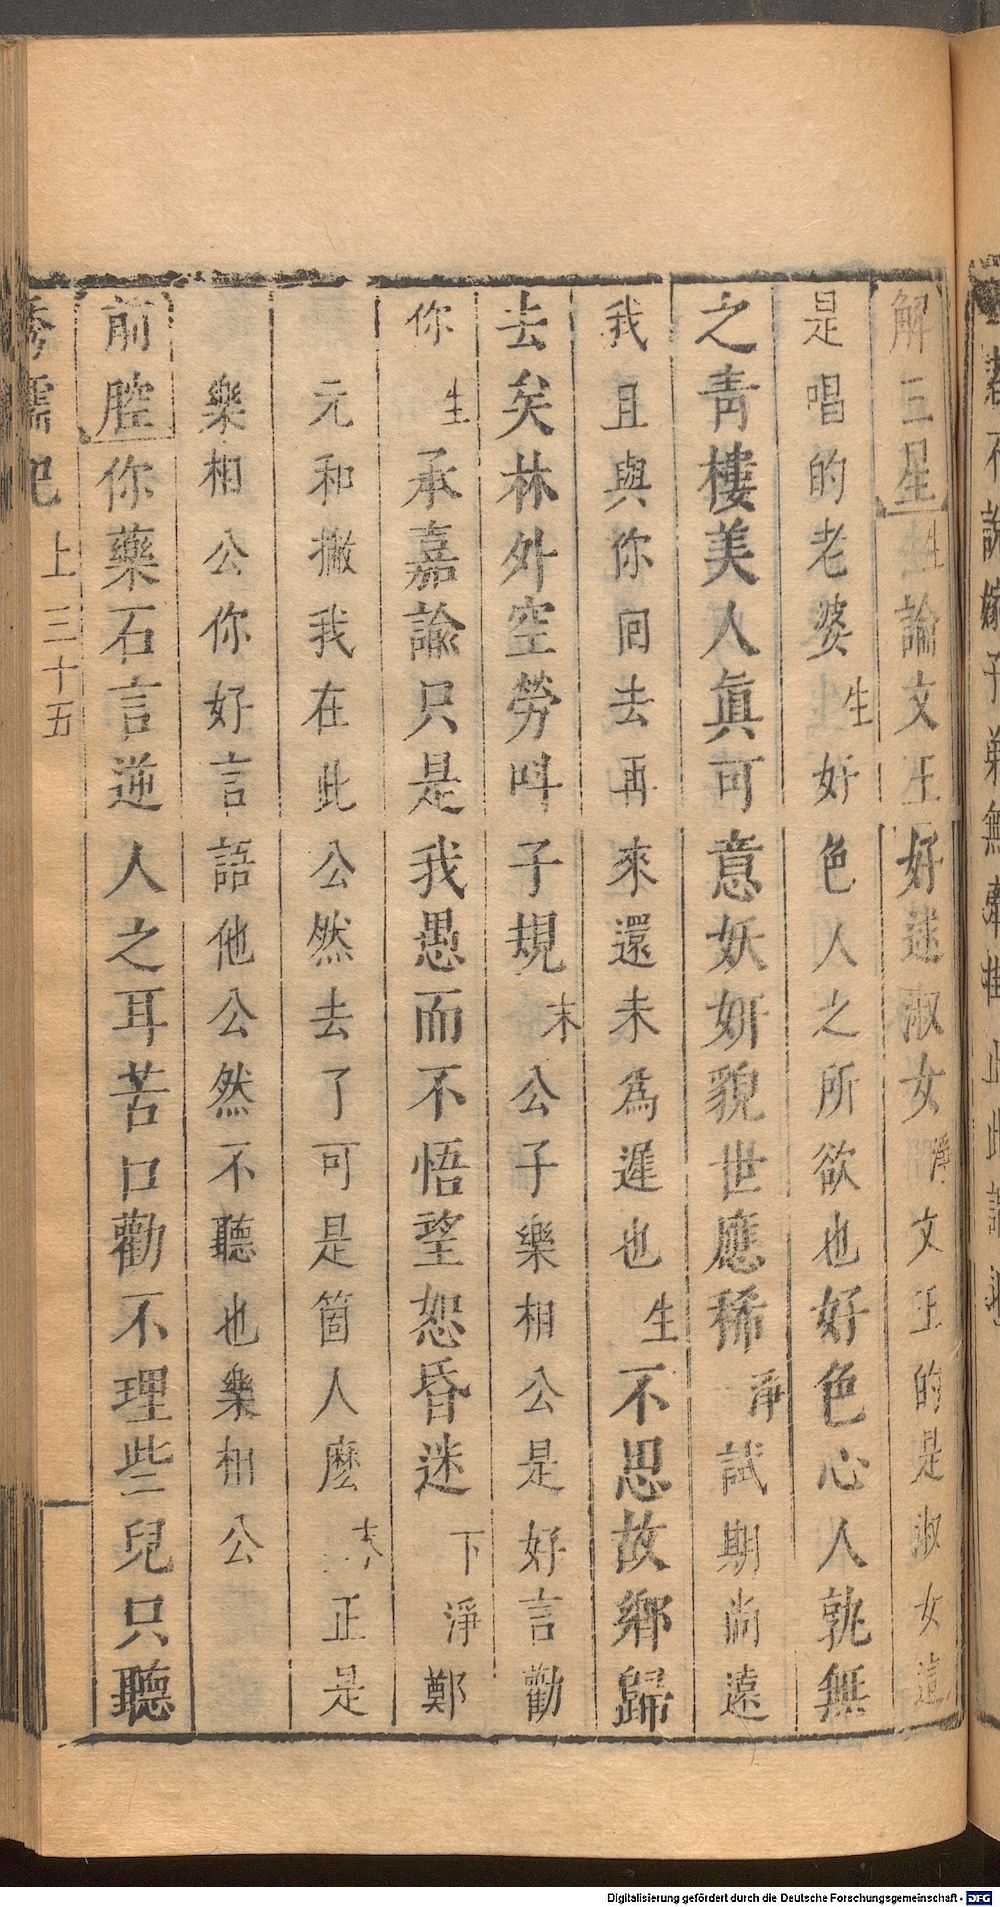 解三星生論文王好逑淑女淨文王的是淑女這
是唱的老婆生好色人之所欲也好色心人孰無
之靑樓美人眞可意妖妍貌世應稀淨試期尚遠
我且與你囘去再來還未爲遲也生不思故鄉歸
去矣林外空勞呌子規末公子樂相公是好言勸
你生承嘉諭只是我愚而不悟望恕昏迷下淨鄭
元和撇我在此公然去了可是箇人麽末正是
樂相公你好言語他公然不聽也樂相公
前腔你藥石言逆人之耳苦口勸不理些兒只聽
繡襦記 上三十五
Digitalisierung gefördert durch die Deutsche Forschungsgemeinschaft - DFG